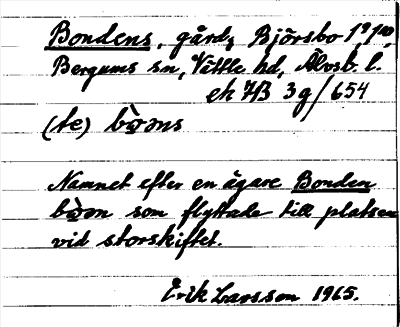 Bondens, gård, Björsbo 1⁹/₁₀₀,
Bergums sn, Vättle hd, Älvsb. l.
ek HB 3g/654
(te) bò̤əns
Namnet efter en ägare Bonden
bò̤ən som flyttade till platsen
vid storskiftet.
Erik Larsson 1965.